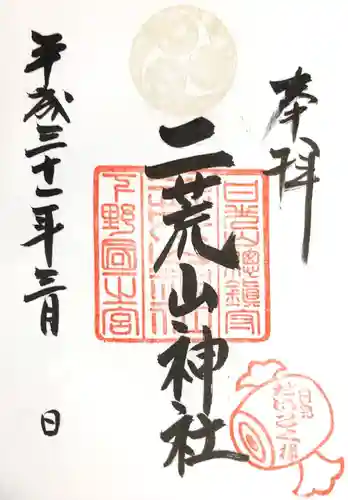 奉拝
日光山總鎮守
二荒山神社
下野國一之宮
平成三十一年三月 日